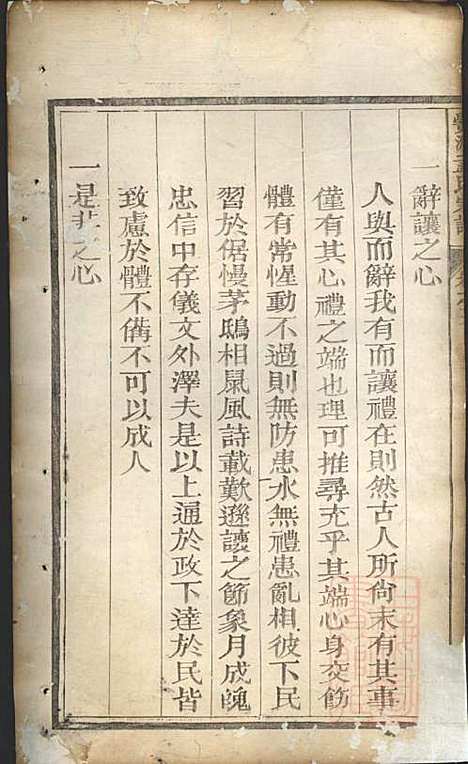 一辭讓之心
人與而辭我有而讓禮在則然古人所尙未有其事
僅有其心禮之端也理可推尋充乎其端心身交笳
體有常惺動不過則無防患水無禮患亂相彼下民
習於倨慢茅鴟相鼠風詩載歎遜讓之節象月成魄
忠信中存儀文外澤夫是以上通於政下達於民皆
致慮於體不備不可以成人
一是非之心